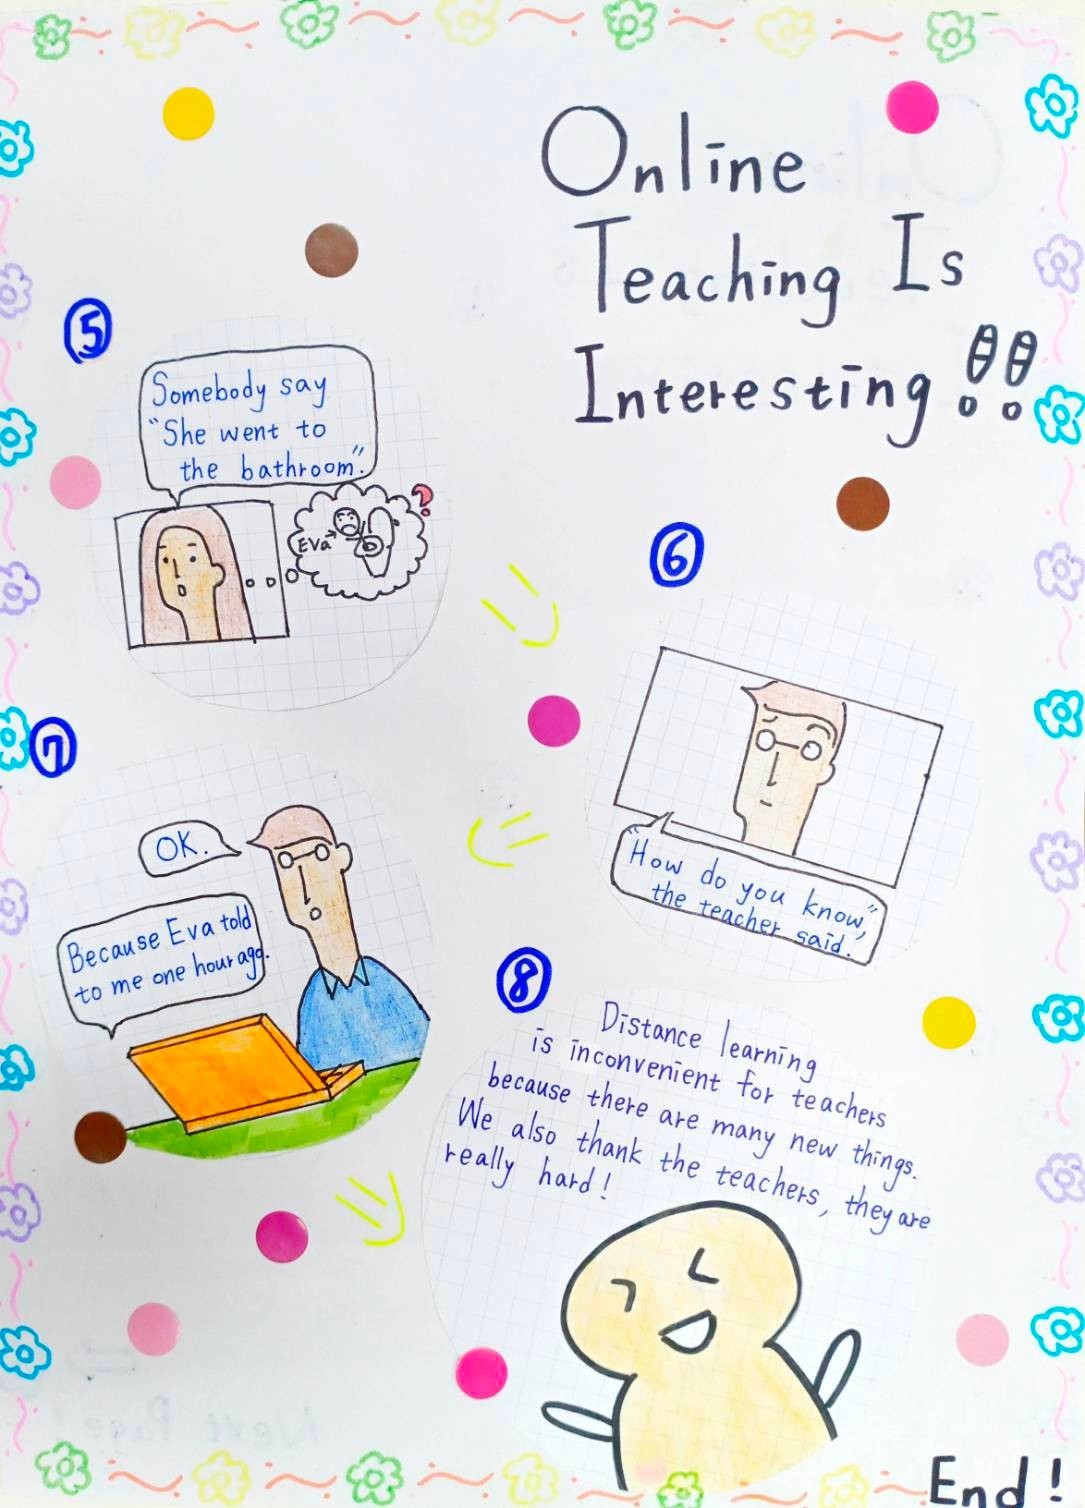 Online
Teaching Is
Interesting!!
5
Somebody say
"She went to
the bathroom".
Eva
?
6
"How do you know,"
the teacher said.
7
OK.
Because Eva told
to me one hour ago.
8
Distance learning
is inconvenient for teachers
because there are many new things.
We also thank the teachers, they are
really hard!
Next Page!
End!